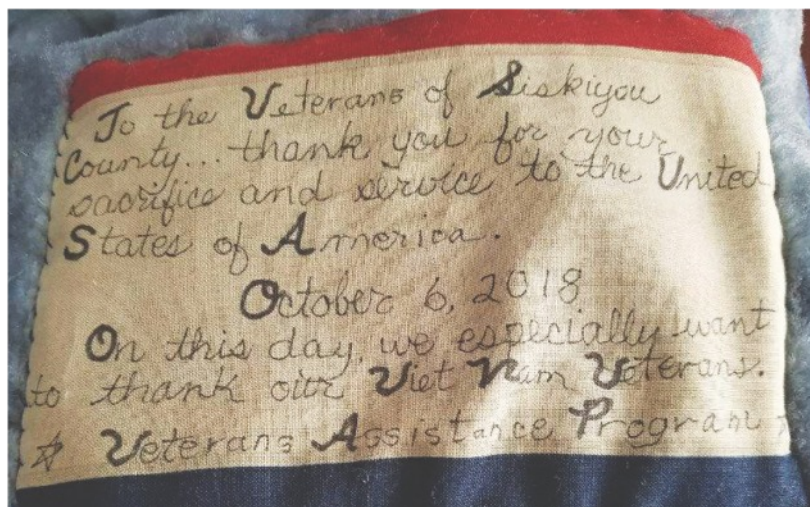 To the Veterans of Siskiyou
County... thank you for your
sacrifice and service to the United
States of America.
October 6, 2018
On this day, we especially want
to thank our Viet Nam Veterans.
☆ Veterans Assistance Program ☆